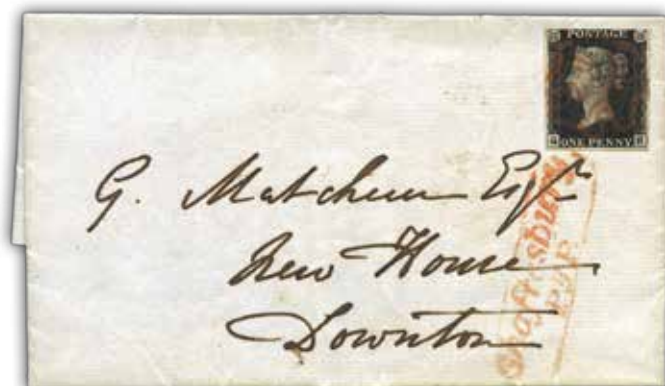 POSTAGE
ONE PENNY
G. Matcham Esqr
New House
Downton